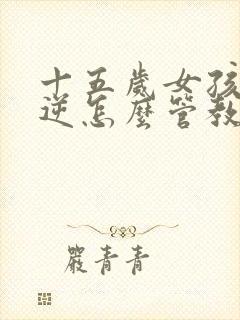 十五歲女孩
逆怎麼管教
嚴青青